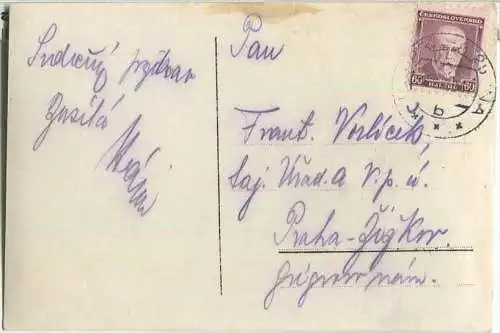 Srdečný pozdrav
Zasílá
Pan
Frant. Vorlíček,
taj. Úřad. A V.p. ú.
Praha-Žižkov.
nám.
ČESKOSLOVENSKO
60
60